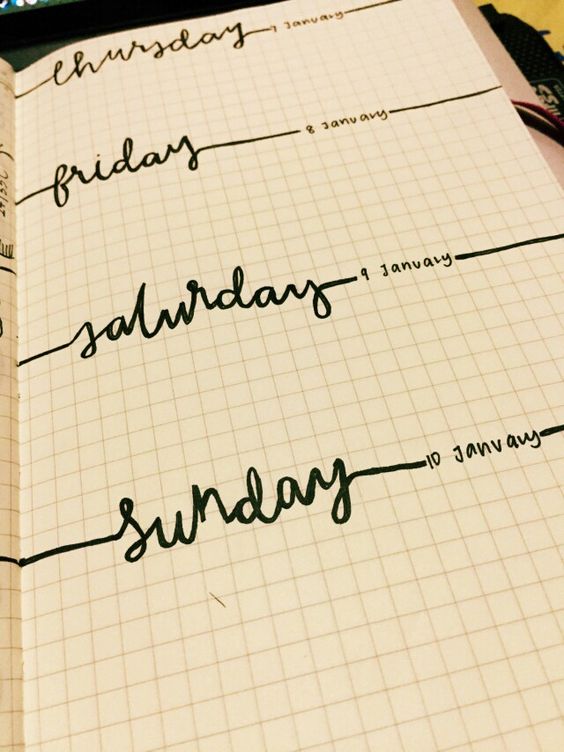 thursday 7 January
friday 8 January
saturday 9 January
sunday 10 January